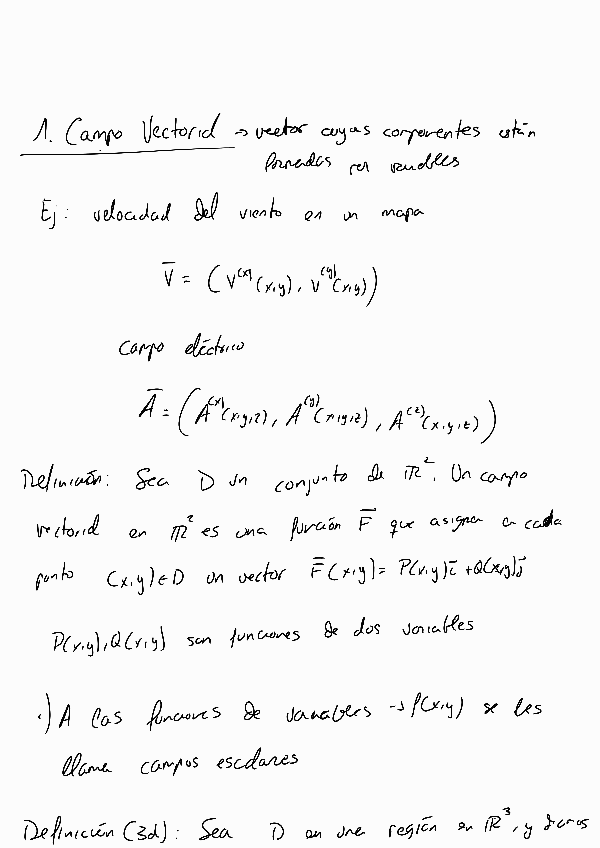 1. Campo Vectorial → vector cuyas componentes están
formadas por variables
Ej: velocidad del viento en un mapa
V̄ = (V^(x)(x,y), V^(y)(x,y))
campo eléctrico
Ā = (A^(x)(x,y,z), A^(y)(x,y,z), A^(z)(x,y,z))
Definición: Sea D un conjunto de ℝ². Un campo
vectorial en ℝ² es una función F̄ que asigna a cada
punto (x,y)∈D un vector F̄(x,y) = P(x,y)ī + Q(x,y)j̄
P(x,y), Q(x,y) son funciones de dos variables
·) A las funciones de variables → f(x,y) se les
llama campos escalares
Definición (3d): Sea D en una región en ℝ³, y